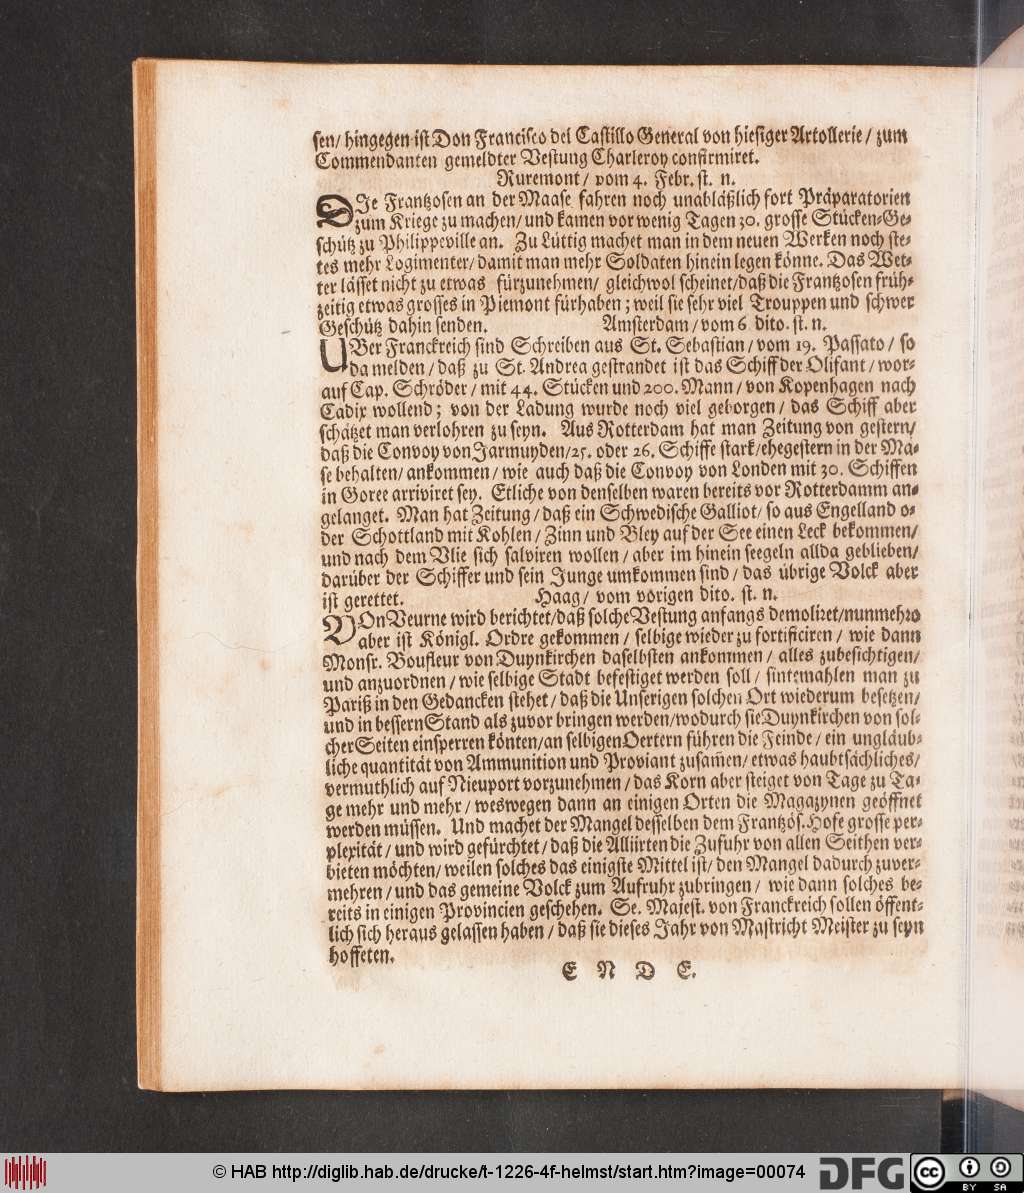 sen/ hingegen ist Don Francisco del Castillo General von hiesiger Artollerie/ zum
Commendanten gemeldter Vestung Charleroy confirmiret.
Ruremont/ vom 4. Febr. st. n.
DIe Frantzosen an der Maase fahren noch unabläßlich fort Präparatorien
zum Kriege zu machen/ und kamen vor wenig Tagen 30. grosse Stücken-Ge-
schütz zu Philippeville an. Zu Lüttig machet man in dem neuen Werken noch ste-
tes mehr Logimenter/ damit man mehr Soldaten hinein legen könne. Das Wet-
ter lässet nicht zu etwas fürzunehmen/ gleichwol scheinet/ daß die Frantzosen früh-
zeitig etwas grosses in Piemont fürhaben; weil sie sehr viel Trouppen und schwer
Geschütz dahin senden. Amsterdam/ vom 6 dito. st. n.
UBer Franckreich sind Schreiben aus St. Sebastian/ vom 19. Passato/ so
da melden/ daß zu St. Andrea gestrandet ist das Schiff der Olifant/ wor-
auf Cap. Schröder/ mit 44. Stücken und 200. Mann/ von Kopenhagen nach
Cadix wollend; von der Ladung wurde noch viel geborgen/ das Schiff aber
schätzet man verlohren zu seyn. Aus Rotterdam hat man Zeitung von gestern/
daß die Convoy von Jarmuyden/ 25. oder 26. Schiffe stark/ ehegestern in der Ma-
se behalten/ ankommen/ wie auch daß die Convoy von Londen mit 30. Schiffen
in Goree arriviret sey. Etliche von denselben waren bereits vor Rotterdamm an-
gelanget. Man hat Zeitung/ daß ein Schwedische Galliot/ so aus Engelland o-
der Schottland mit Kohlen/ Zinn und Bley auf der See einen Leck bekommen/
und nach dem Vlie sich salviren wollen/ aber im hinein seegeln allda geblieben/
darüber der Schiffer und sein Junge umkommen sind/ das übrige Volck aber
ist gerettet. Haag/ vom vorigen dito. st. n.
VOn Veurne wird berichtet/ daß solche Vestung anfangs demoliret/ nunmehro
aber ist Königl. Ordre gekommen/ selbige wieder zu fortificiren/ wie dann
Monsr. Boufleur von Duynkirchen daselbsten ankommen/ alles zubesichtigen/
und anzuordnen/ wie selbige Stadt befestiget werden soll/ sintemahlen man zu
Pariß in den Gedancken stehet/ daß die Unserigen solchen Ort wiederum besetzen/
und in bessern Stand als zuvor bringen werden/ wodurch sie Duynkirchen von sol-
cher Seiten einsperren könten/ an selbigen Oertern führen die Feinde/ ein ungläub-
liche quantität von Ammunition und Proviant zusam̃en/ etwas haubtsächliches/
vermuthlich auf Nieuport vorzunehmen/ das Korn aber steiget von Tage zu Ta-
ge mehr und mehr/ weswegen dann an einigen Orten die Magazynen geöffnet
werden müssen. Und machet der Mangel desselben dem Frantzös. Hofe grosse per-
plexität/ und wird gefürchtet/ daß die Alliirten die Zufuhr von allen Seithen ver-
bieten möchten/ weilen solches das einigste Mittel ist/ den Mangel dadurch zuver-
mehren/ und das gemeine Volck zum Aufruhr zubringen/ wie dann solches be-
reits in einigen Provincien geschehen. Se. Majest. von Franckreich sollen öffent-
lich sich heraus gelassen haben/ daß sie dieses Jahr von Mastricht Meister zu seyn
hoffeten.
E N D E.
© HAB http://diglib.hab.de/drucke/t-1226-4f-helmst/start.htm?image=00074
DFG
cc BY SA